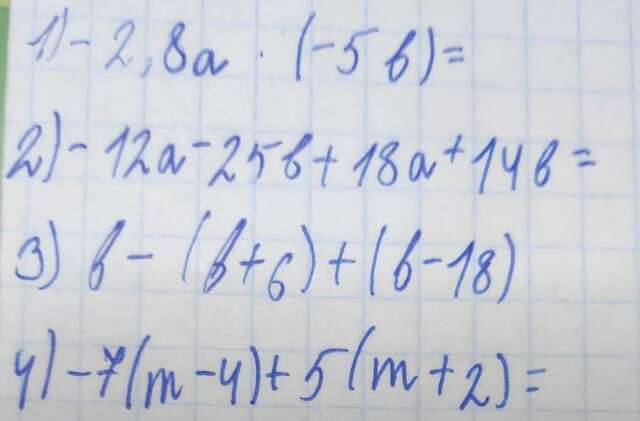 1) - 2,8a · (-5b) =
2) - 12a - 25b + 18a + 14b =
3) b - (b + 6) + (b - 18)
4) - 7(m - 4) + 5(m + 2) =